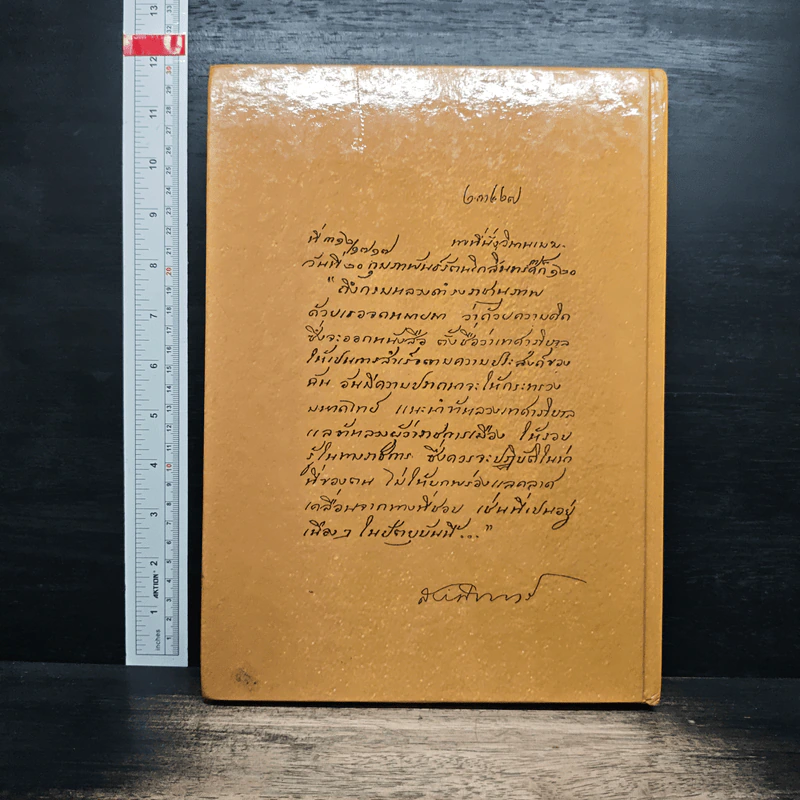 ที่ ๓๑๖/๑๗๑๗
วันที่ ๒๐ กุมภาพันธ์ รัตนโกสินทรศก ๑๒๐
"ถึงกรมหลวงดำรงราชานุภาพ
ด้วยเธอจดหมายมา ว่าด้วยความคิด
ซึ่งจะออกหนังสือ ตั้งชื่อว่าเทศาภิบาล
ให้เปนการสำเร็จตามความประสงค์ของ
ฉัน อันมีความปราถนาจะให้กระทรวง
มหาดไทย แนะนำข้าหลวงเทศาภิบาล
แลข้าหลวงผู้ว่าราชการเมือง ให้รอบ
รู้ในทางราชการ ซึ่งควรจะปฏิบัติในน่า
ที่ของตน ไม่ให้บกพร่องแลคลาศ
เคลื่อนจากทางที่ชอบ เช่นที่เปนอยู่
เนืองๆ ในปัตยุบันนี้..."
สยามินทร์
inches
AKTION
1 2 3 4 5 6 7 8 9 10 11 12 13
10 20 30